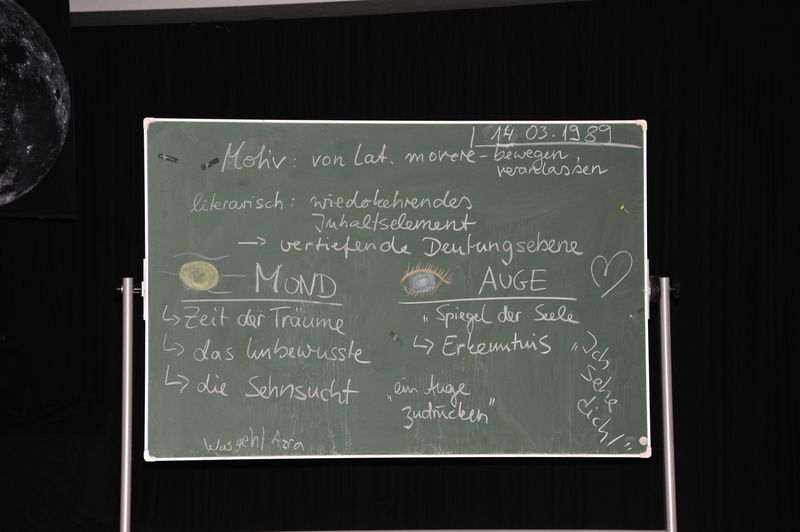 14.03.1989
Motiv: von lat. movere - bewegen,
veranlassen
literarisch: wiederkehrendes
Inhaltselement
→ vertiefende Deutungsebene
MOND
↳ Zeit der Träume
↳ das Unbewusste
↳ die Sehnsucht
AUGE
„Spiegel der Seele
↳ Erkenntnis
„ein Auge
zudrücken"
„Ich
sehe
dich!"
Was geht Azra